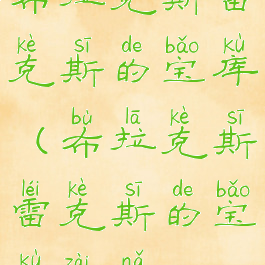 布拉克斯雷
kè sī de bǎo kù
克斯的宝库
bù lā kè sī
（布拉克斯
léi kè sī de bǎo
雷克斯的宝
kù zài nǎ